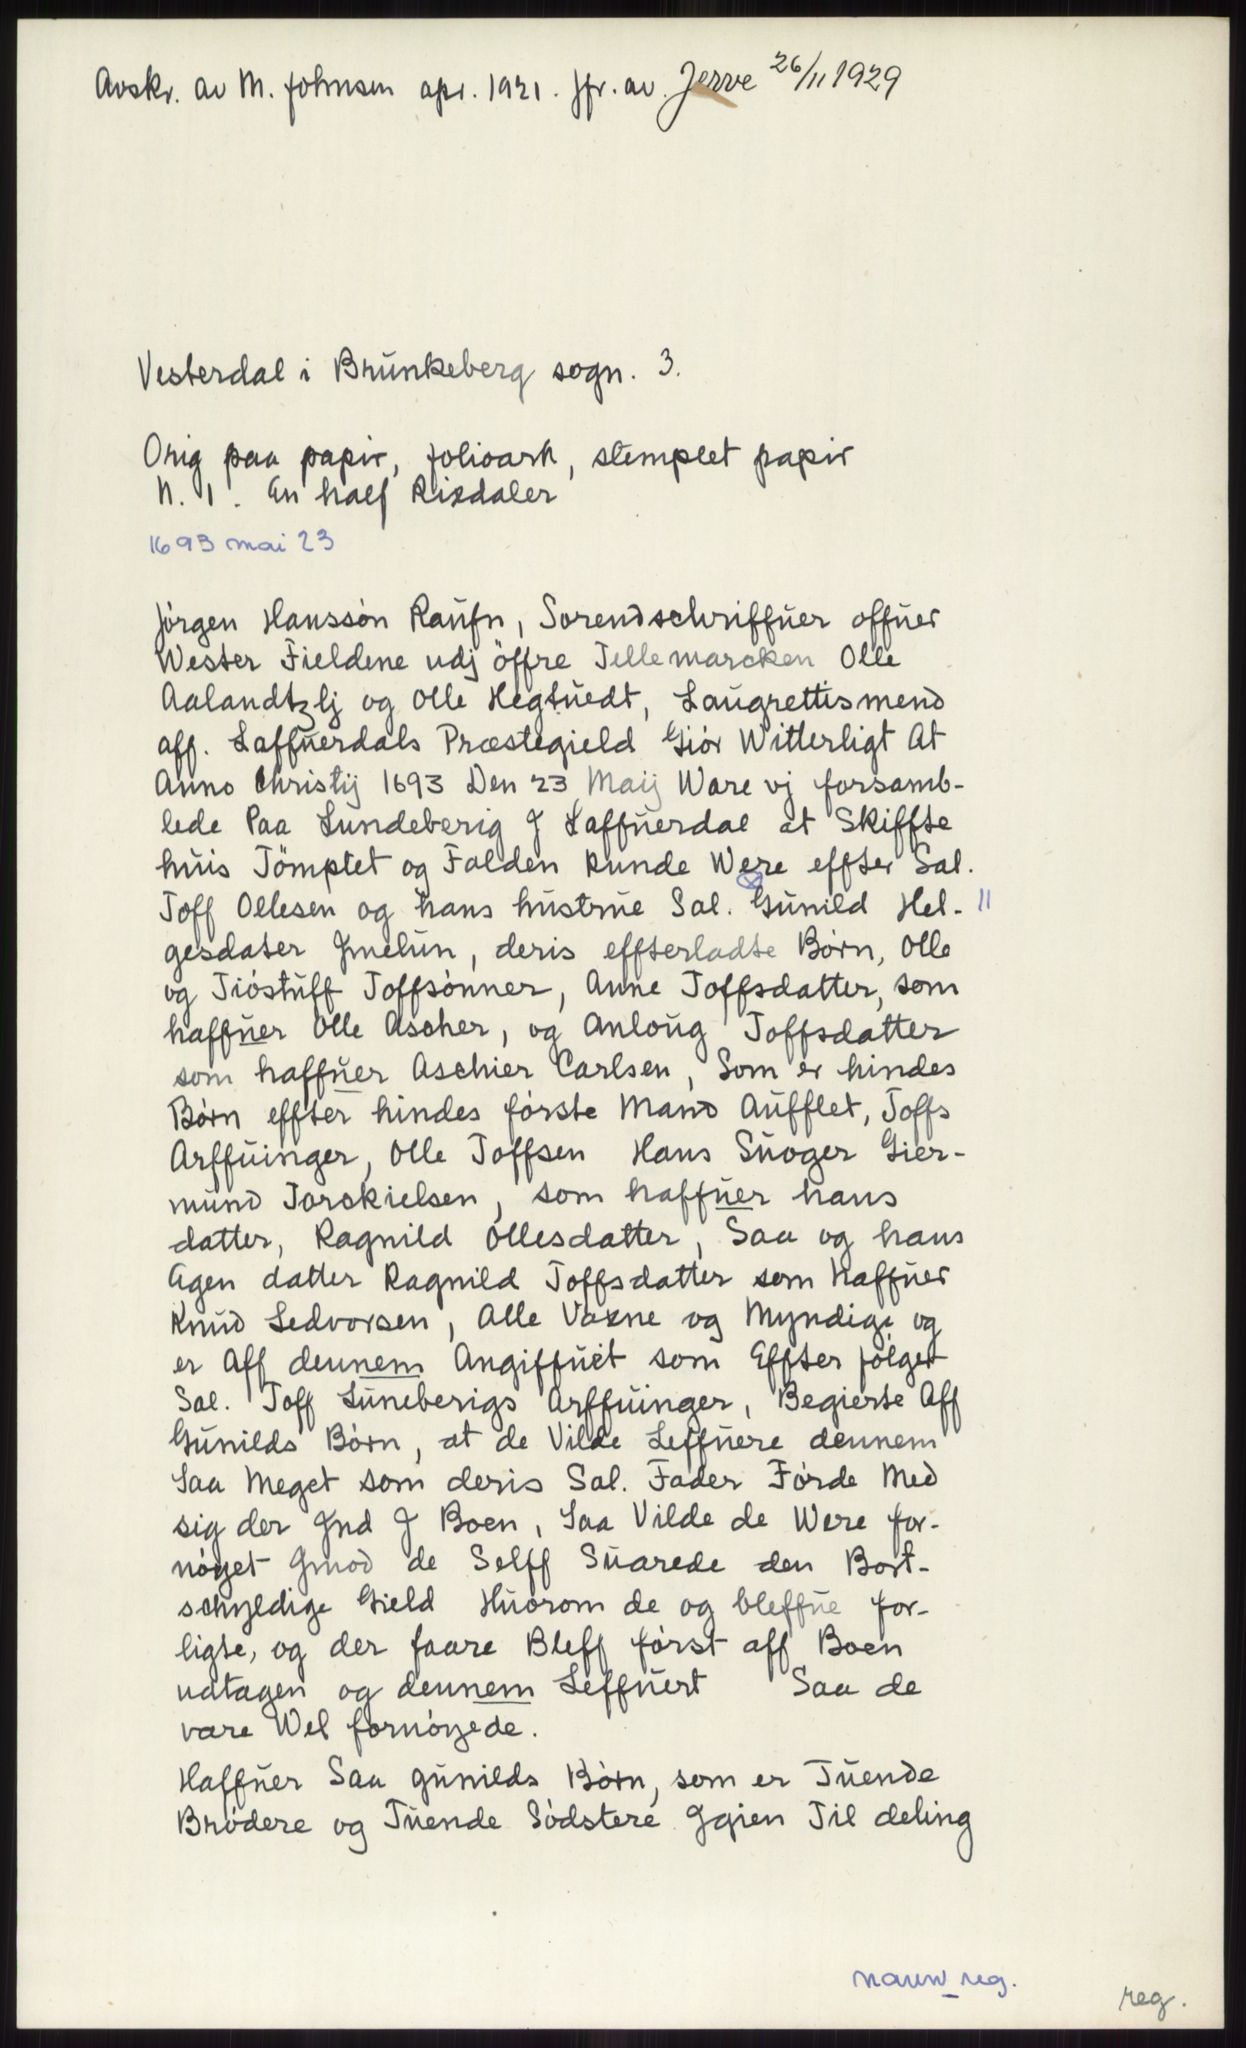 Avskr. av M. Johnsen apr. 1921. Jfr. av. Jerve 26/11 1929
Vesterdal i Brünkeberg sogn. 3.
Orig paa papir, folioark, stemplet papir
N. 1. En half Rixdaler
1693 mai 23
Jörgen Hanssön Raüfn, Sorenschriffüer offüer
Wester Fieldene udj öffre Tellemarcken Olle
Aalandtzlj og Olle Hegtüedt, Laügrettismend
aff. Laffüerdals Præstegield Giör Witterligt At
Anno Christij 1693 Den 23 Maij Ware vj forsamb-
lede Paa Lundeberig J Laffüerdal at Skiffte
hüis Tömptet og Falden kunde Were effter Sal.
Toff Ollesen og hans hüstrüe Sal. Günild Hel- 11
gesdater Jmelün, deris effterladte Börn, Olle
og Tióstüff Toffsónner, Anne Toffsdatter, som
haffüer Olle Ascher, og Anloüg Toffsdatter
som haffüer Aschier Carlsen, Som er hindes
Börn effter hindes förste Mand Aüfflet, Toffs
Arffüinger, Olle Toffsen Hans Süoger Gier-
münd Torckielsen, som haffüer hans
datter, Ragnild Ollesdatter, Saa og hans
Egen datter Ragnild Toffsdatter som Haffüer
Knüd Ledvorsen, Alle Voxne og Myndige og
er Aff dennem Angiffüet som Effter fölger
Sal. Toff Lüneberigs Arffüinger, Begierte Aff
Günilds Börn, at de Vilde Leffüere dennem
Saa Meget som deris Sal. Fader Förde Med
sig der Jnd J Boen, Saa Vilde de Were for-
nöyet Jmod de Selff Süarede den Bort-
schyldige Gield Hüorom de og bleffüe for-
ligte, og der faare Bleff först aff Boen
udtagen og dennem Leffüert Saa de
vare Wel fornöyede.
Haffüer Saa günilds Börn, som er Tüende
Brödere og Tüende Södstere Jgien Til deling
navn_reg.
reg.